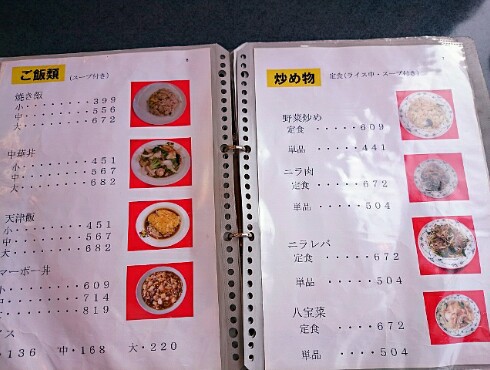 ご飯類 (スープ付き)
焼き飯
小・・・・・・・・399
中・・・・・・・・556
大・・・・・・・・672
中華丼
小・・・・・・・・451
中・・・・・・・・567
大・・・・・・・・682
天津飯
小・・・・・・・・451
中・・・・・・・・567
大・・・・・・・・682
マーボー丼
小・・・・・・・・609
・・・・・・・・714
・・・・・・・・819
・136 中・168 大・220
炒め物 定食(ライス中・スープ付き)
野菜炒め
定食 ・・・・・609
単品 ・・・・・441
ニラ肉
定食 ・・・・・672
単品 ・・・・・504
ニラレバ
定食 ・・・・・672
単品 ・・・・・504
八宝菜
定食 ・・・・・672
単品 ・・・・・504